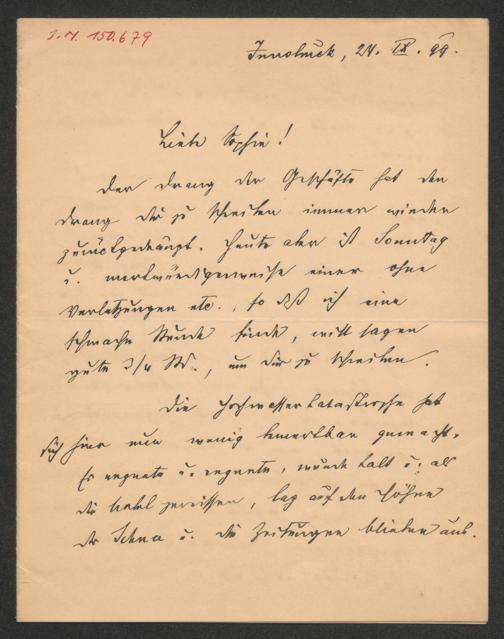 I.N. 150.679
Innsbruck, 24. IX. 99.
Liebe Sophie!
Der Drang der Geschäfte hat den
Drang Dir zu schreiben immer wieder
zurückgedrängt. Heute aber ist Sonntag
u. merkwürdigerweise einer ohne
Verletzungen etc., so daß ich eine
schwache Stunde finde, will sagen
gute 3/4 Std., um Dir zu schreiben.
Die Hochwasserkatastrophe hat
sich hier nur wenig bemerkbar gemacht.
Es regnete u. regnete, wurde kalt u. als
die Nebel zerrissen, lag auf den Höhen
der Schnee u. die Zeitungen blieben aus.